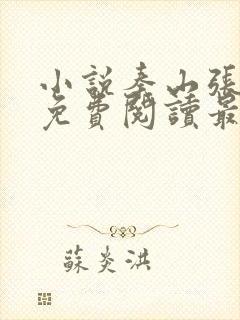 小說秦山張
免費閱讀最
蘇炎洪